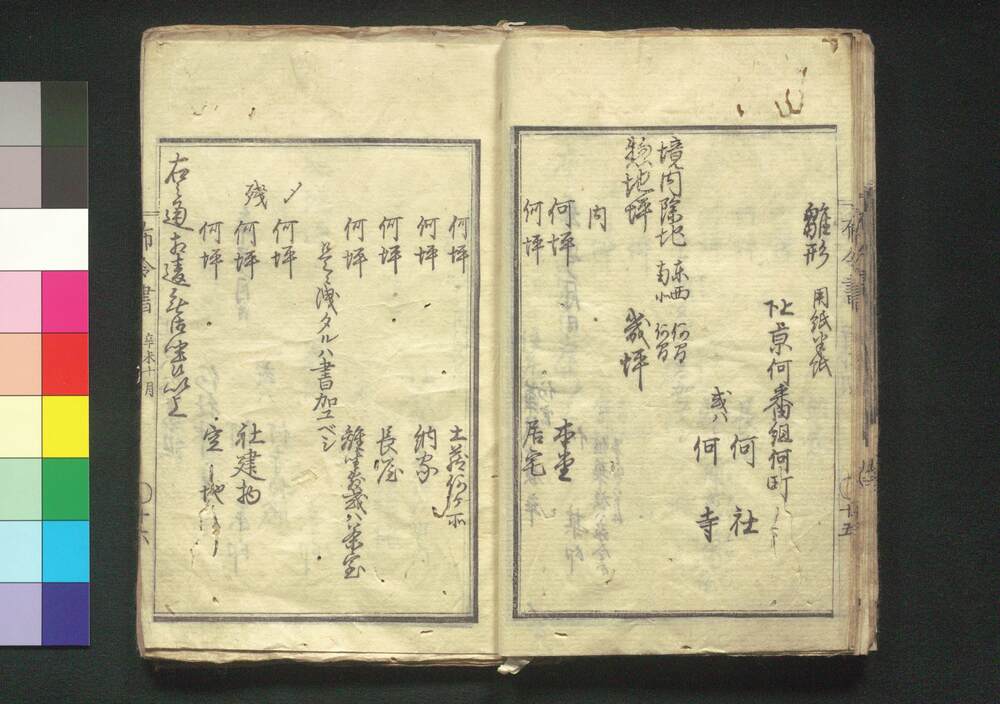 雛形 用紙半紙
上下京何番組何町
何社
或ハ
何寺
境内除地 東西 何間
南北 何間
惣地坪 幾坪
内
何坪 本堂
何坪 居宅
布令書
十五
何坪 土蔵何ヶ所
何坪 納家
何坪 長屋
何坪 離座敷或ハ茶室
是ニ洩タルハ書加ユベシ
〆
何坪
残
何坪 社建物
何坪 空地
右之通相違無御座候以上
布令書 辛未十月
十六